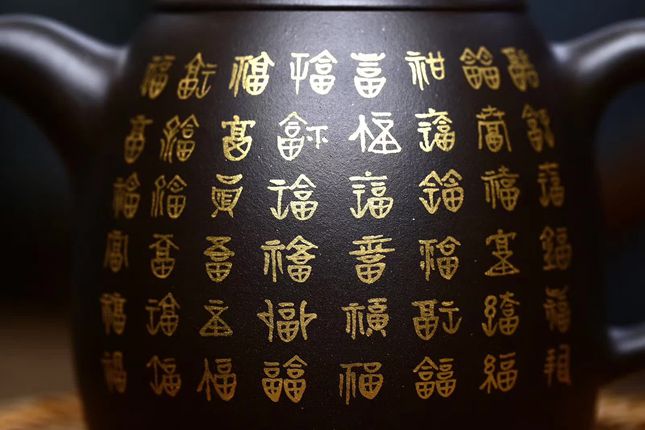 福福福福福福福福
福福福福福福福福
福福福福福福福福
福福福福福福福福
福福福福福福福福
福福福福福福福福